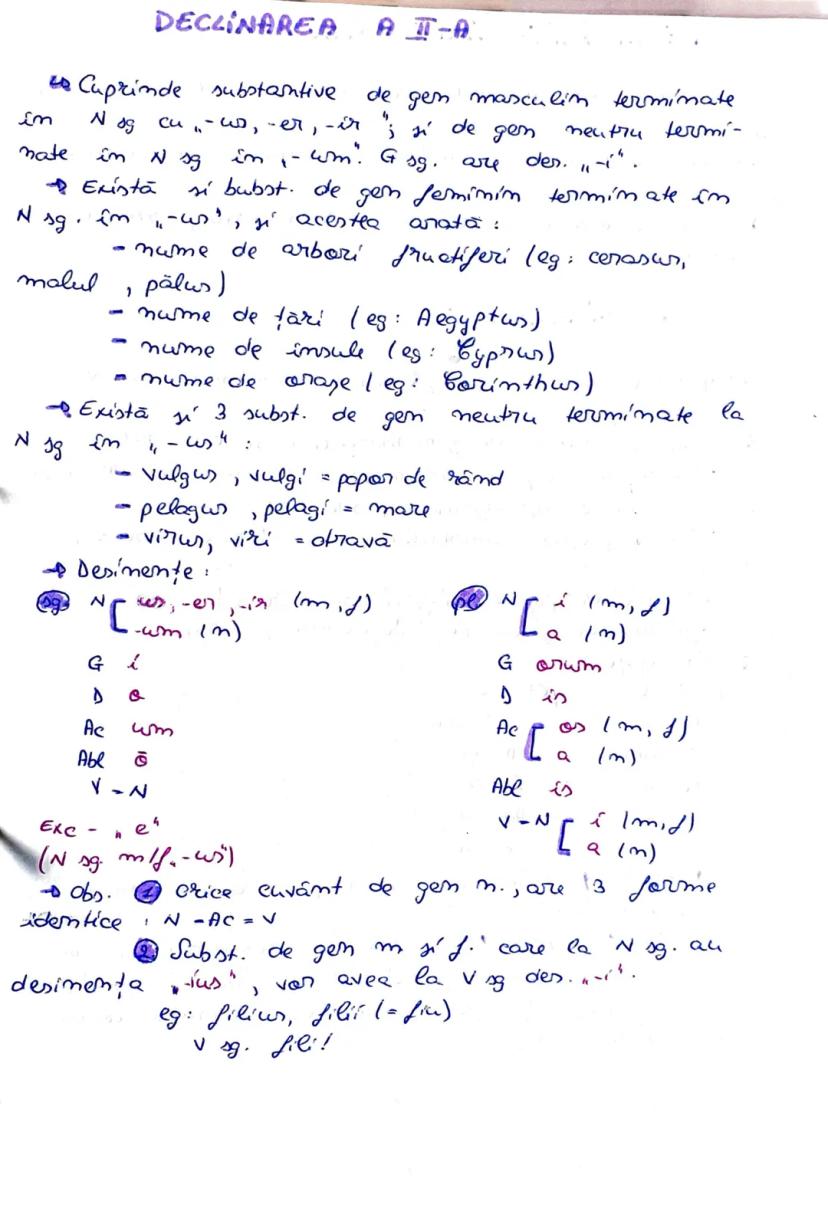 DECLINAREA A II-A
↳ Cuprinde substantive de gen masculin terminate
în N sg cu „-us, -er, -ir"; și de gen neutru termi-
nate în N sg în „-um". G sg. are des. „-i".
→ Există și subst. de gen feminin terminate în
N sg. în „-us", și acestea arată:
- nume de arbori fructiferi (eg: cerasus,
malul, pălus)
- nume de țări (eg: Aegyptus)
- nume de insule (eg: Cyprus)
- nume de orașe (eg: Corinthus)
→ Există și 3 subst. de gen neutru terminate la
N sg în „-us" :
- vulgus, vulgi = popor de rând
- pelagus, pelagi = mare
- virus, viri = otravă
→ Desinențe :
sg. N [ us, -er, -ir (m, f)
-um (n)
G i
D o
Ac um
Abl ō
V = N
Exc - „e"
(N sg. m/f „-us")
pl N [ i (m, f)
a (n)
G orum
D is
Ac [ os (m, f)
a (n)
Abl is
V = N [ i (m, f)
a (n)
→ Obs. 1 Orice cuvânt de gen n., are 3 forme
identice : N = AC = V
2 Subst. de gen m și f. care la N sg. au
desinența „-ius", vor avea la V sg des. „-i".
eg: filius, filii (= fiu)
V sg. fili!